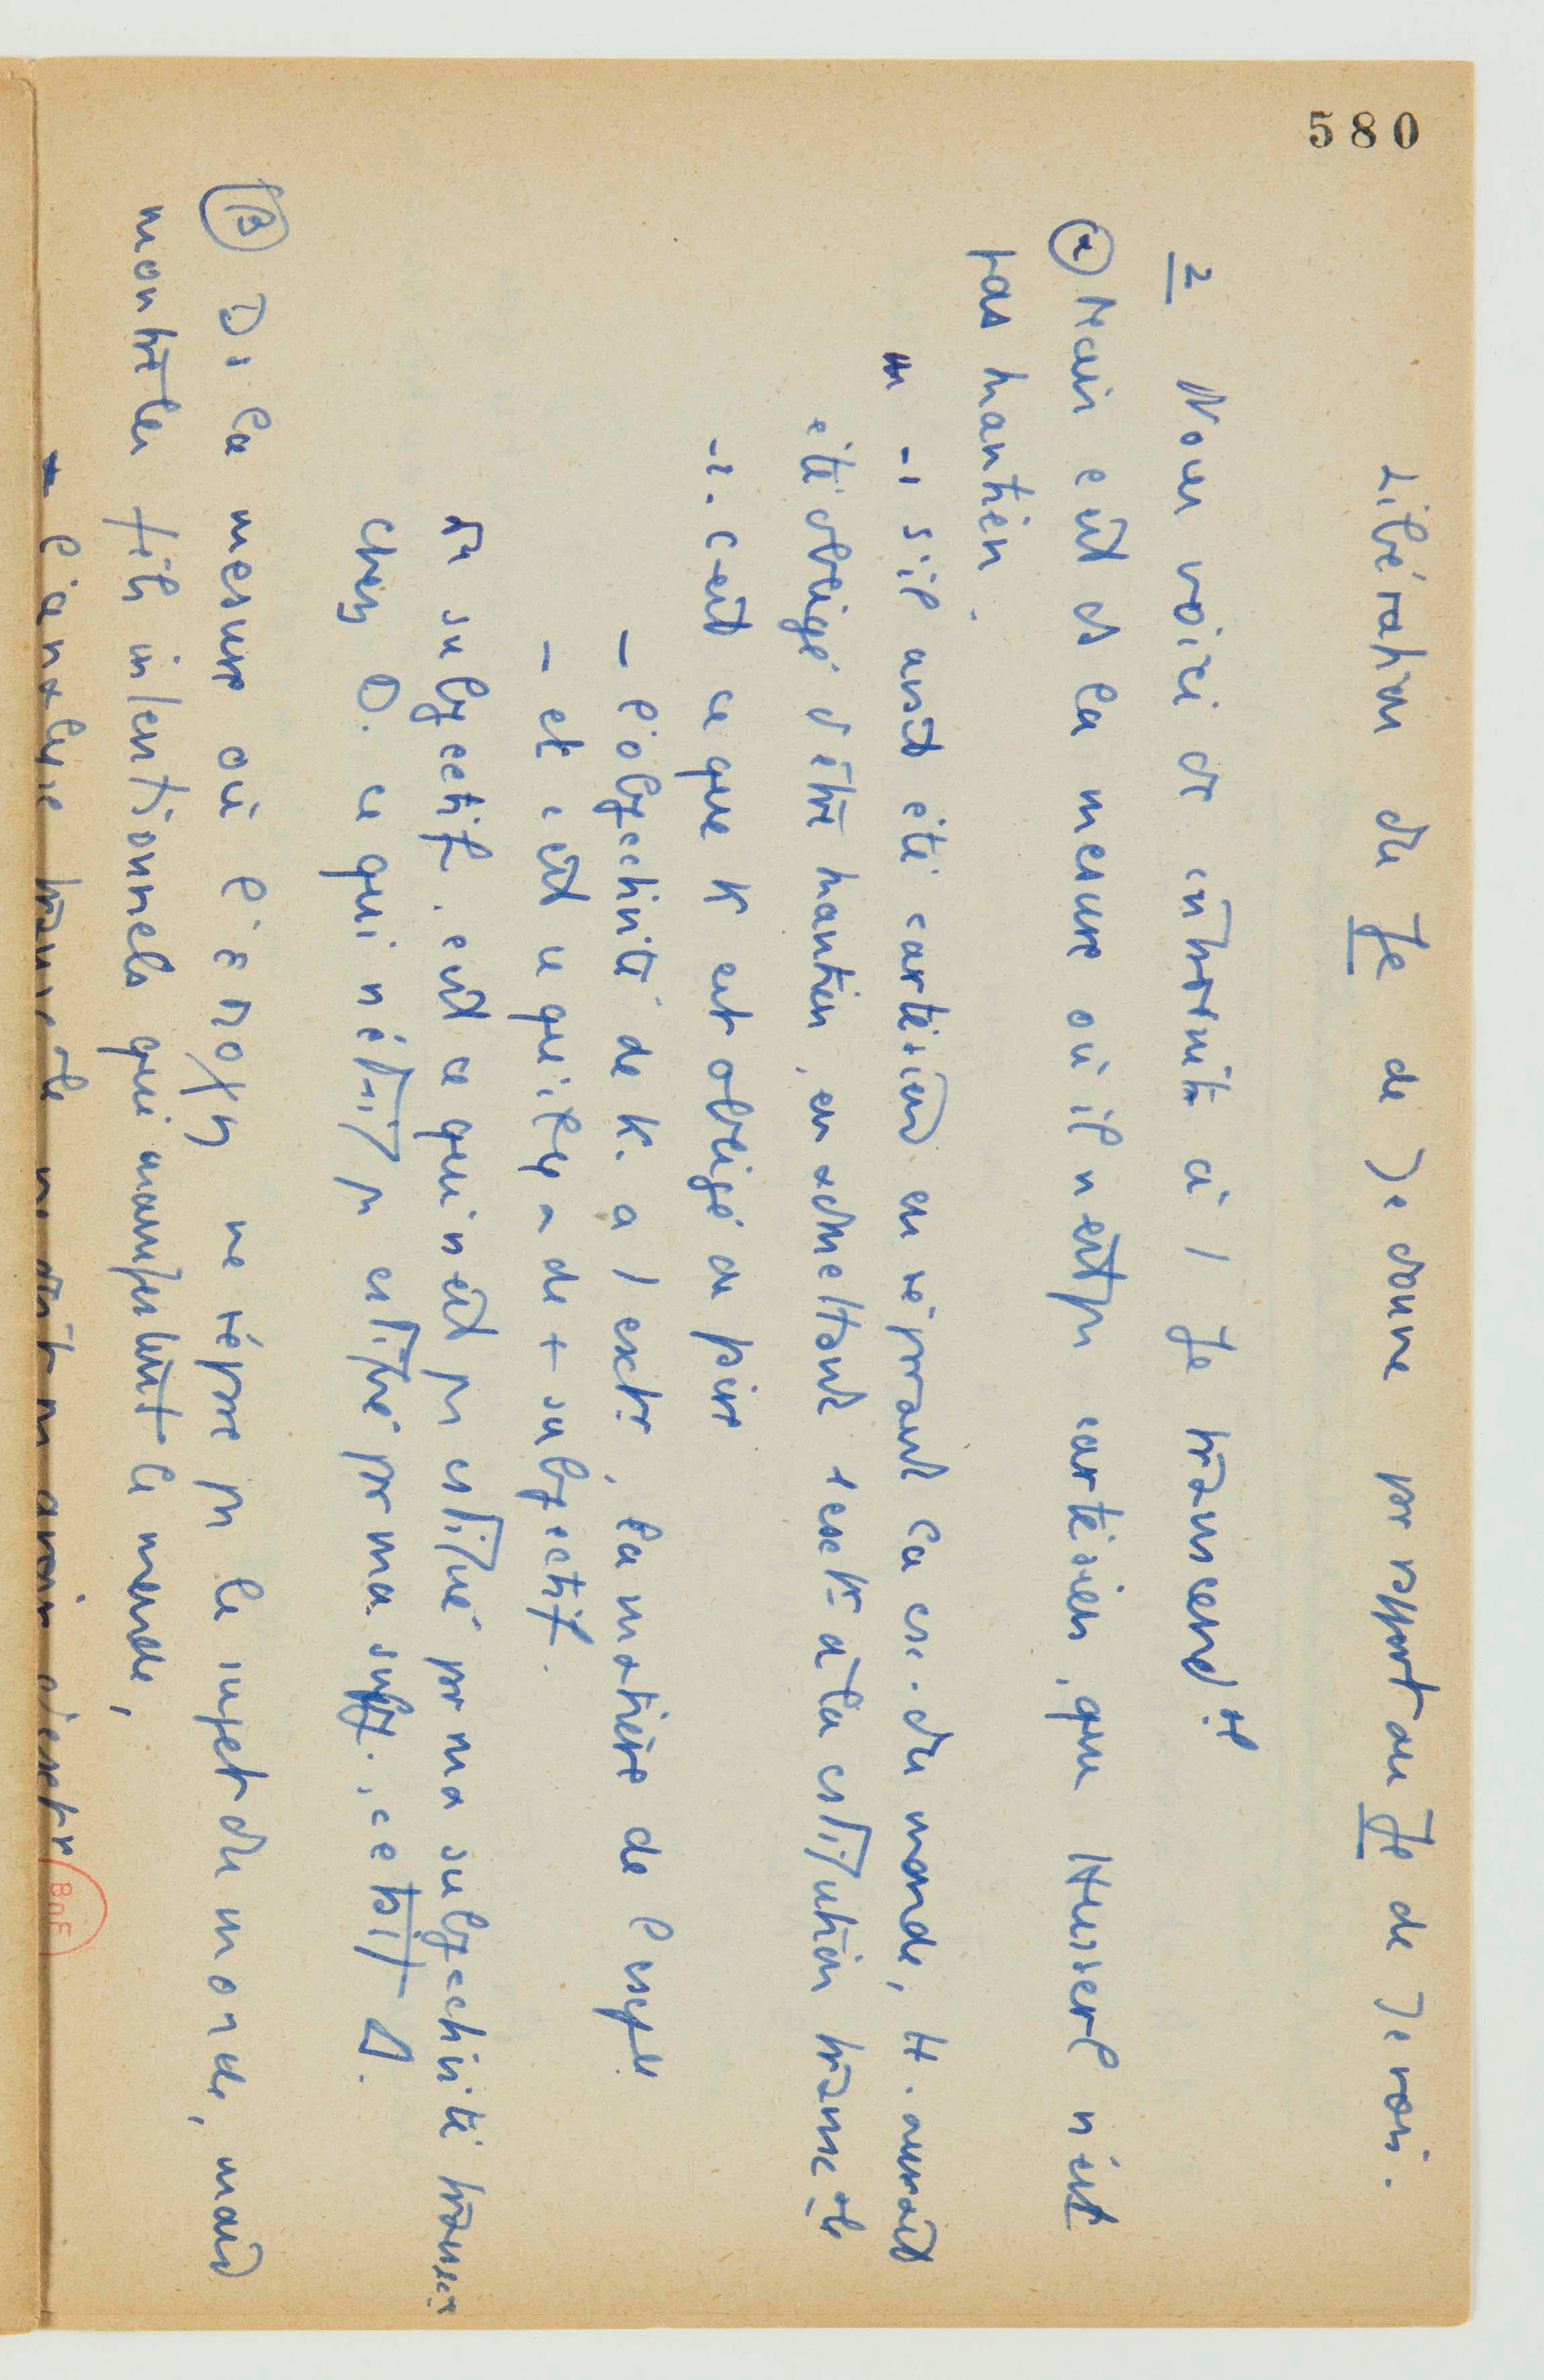 580
Libération du Je de Je donne par rapport au Je de Je vois.
2 Nous voici dc introduits à / Je transcendtal
α Mais c'est ds la mesure où il n'est pas cartésien, que Husserl n'est
pas kantien.
- 1 s'il avait été cartésien en réponant la csc. du monde, H. aurait
été obligé d'être kantien, en admettant + esch à la cstitution transctle
- 2. c'est ce que K est obligé de faire
- l'objectivité de K. a / , la matière de l'
- et c'est ce qu'il y a de + subjectif.
Du subjectif. est ce qui n'est pas cstitué par ma subjectivité transc
chez D. ce qui n'était pas cstitué par ma subj. c'était D.
β Ds la mesure où l'ἐποχή ne répose pas le sujet du monde, mais
montre les fils intentionnels qui manifestent le monde,
- l'analyse transctle ne doit pas avoir d'
BnF